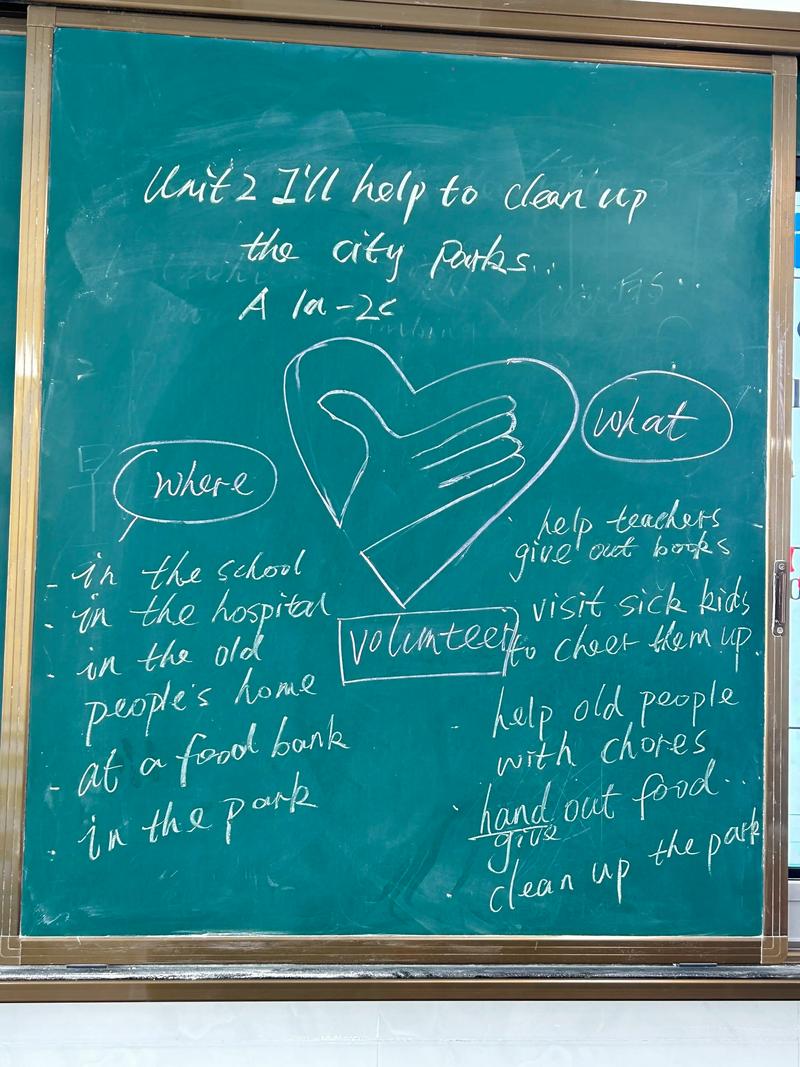 Unit 2 I'll help to clean up
the city parks.
A 1a-2c
where
- in the school
- in the hospital
- in the old
people's home
- at a food bank
- in the park
volunteer
what
help teachers
give out books
visit sick kids
to cheer them up.
help old people
with chores
hand out food...
give
clean up the park